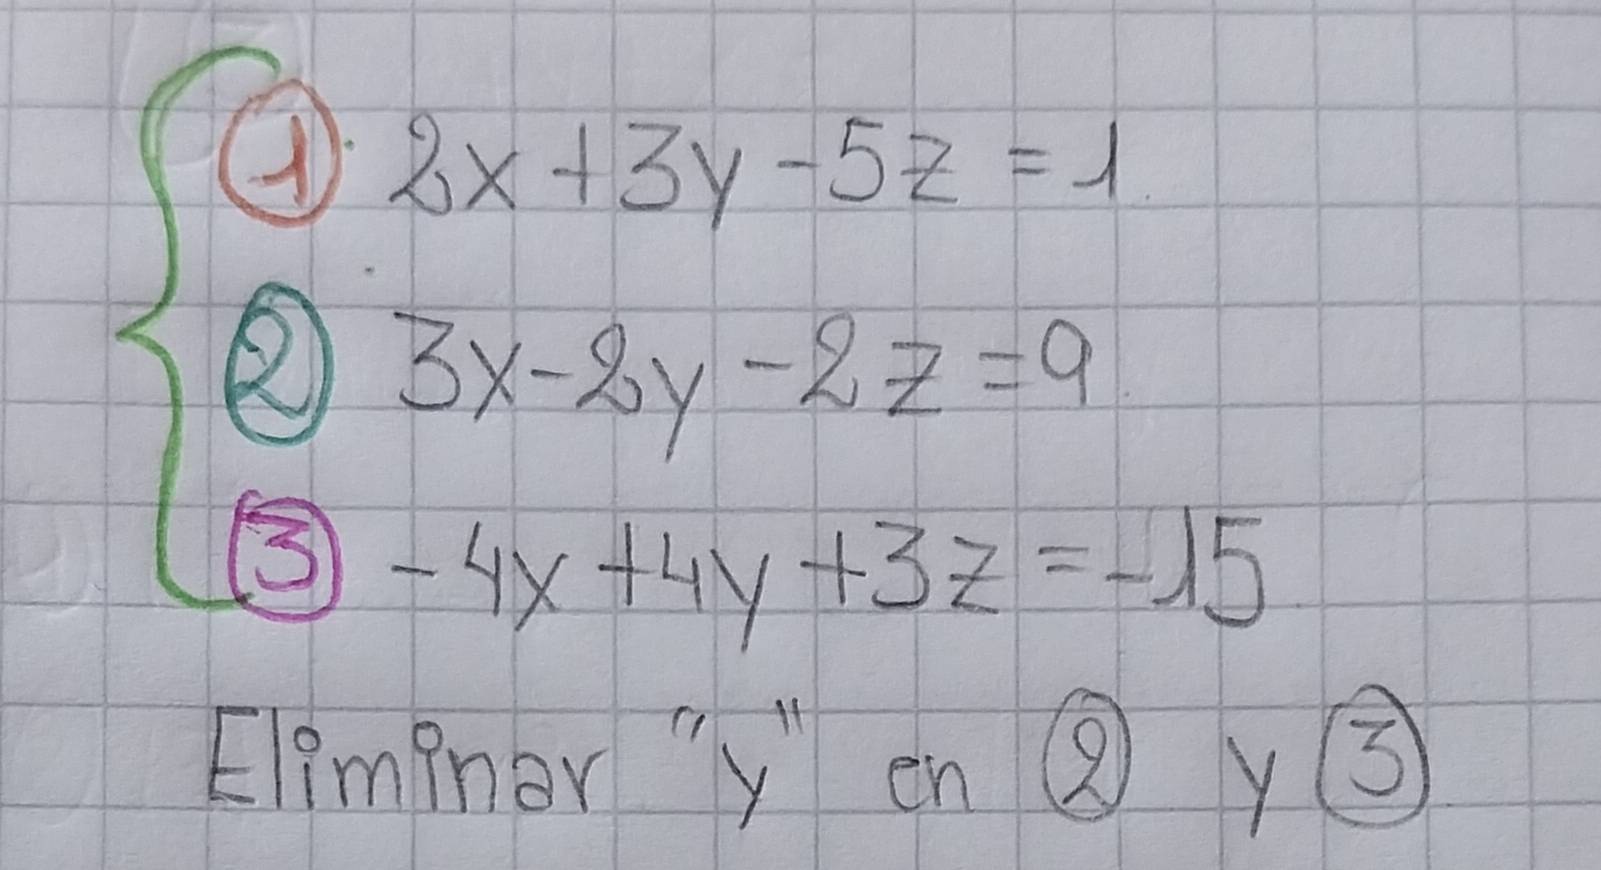 ① 2x + 3y - 5z = 1
② 3x - 2y - 2z = 9
③ - 4x + 4y + 3z = -15
Eliminar "y" en ② y ③